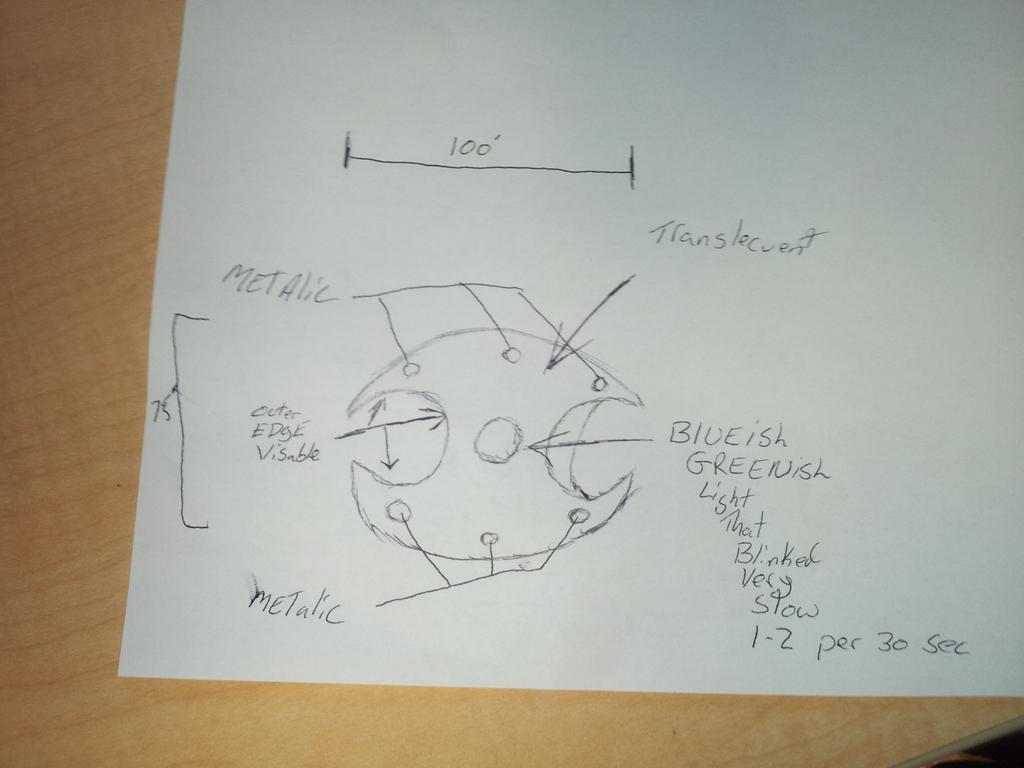 100'
Translecuent
METAlic
75
outer
EDGE
Visable
BlUEish
GREENish
Light
That
Blinked
Very
Slow
1-2 per 30 sec
METalic